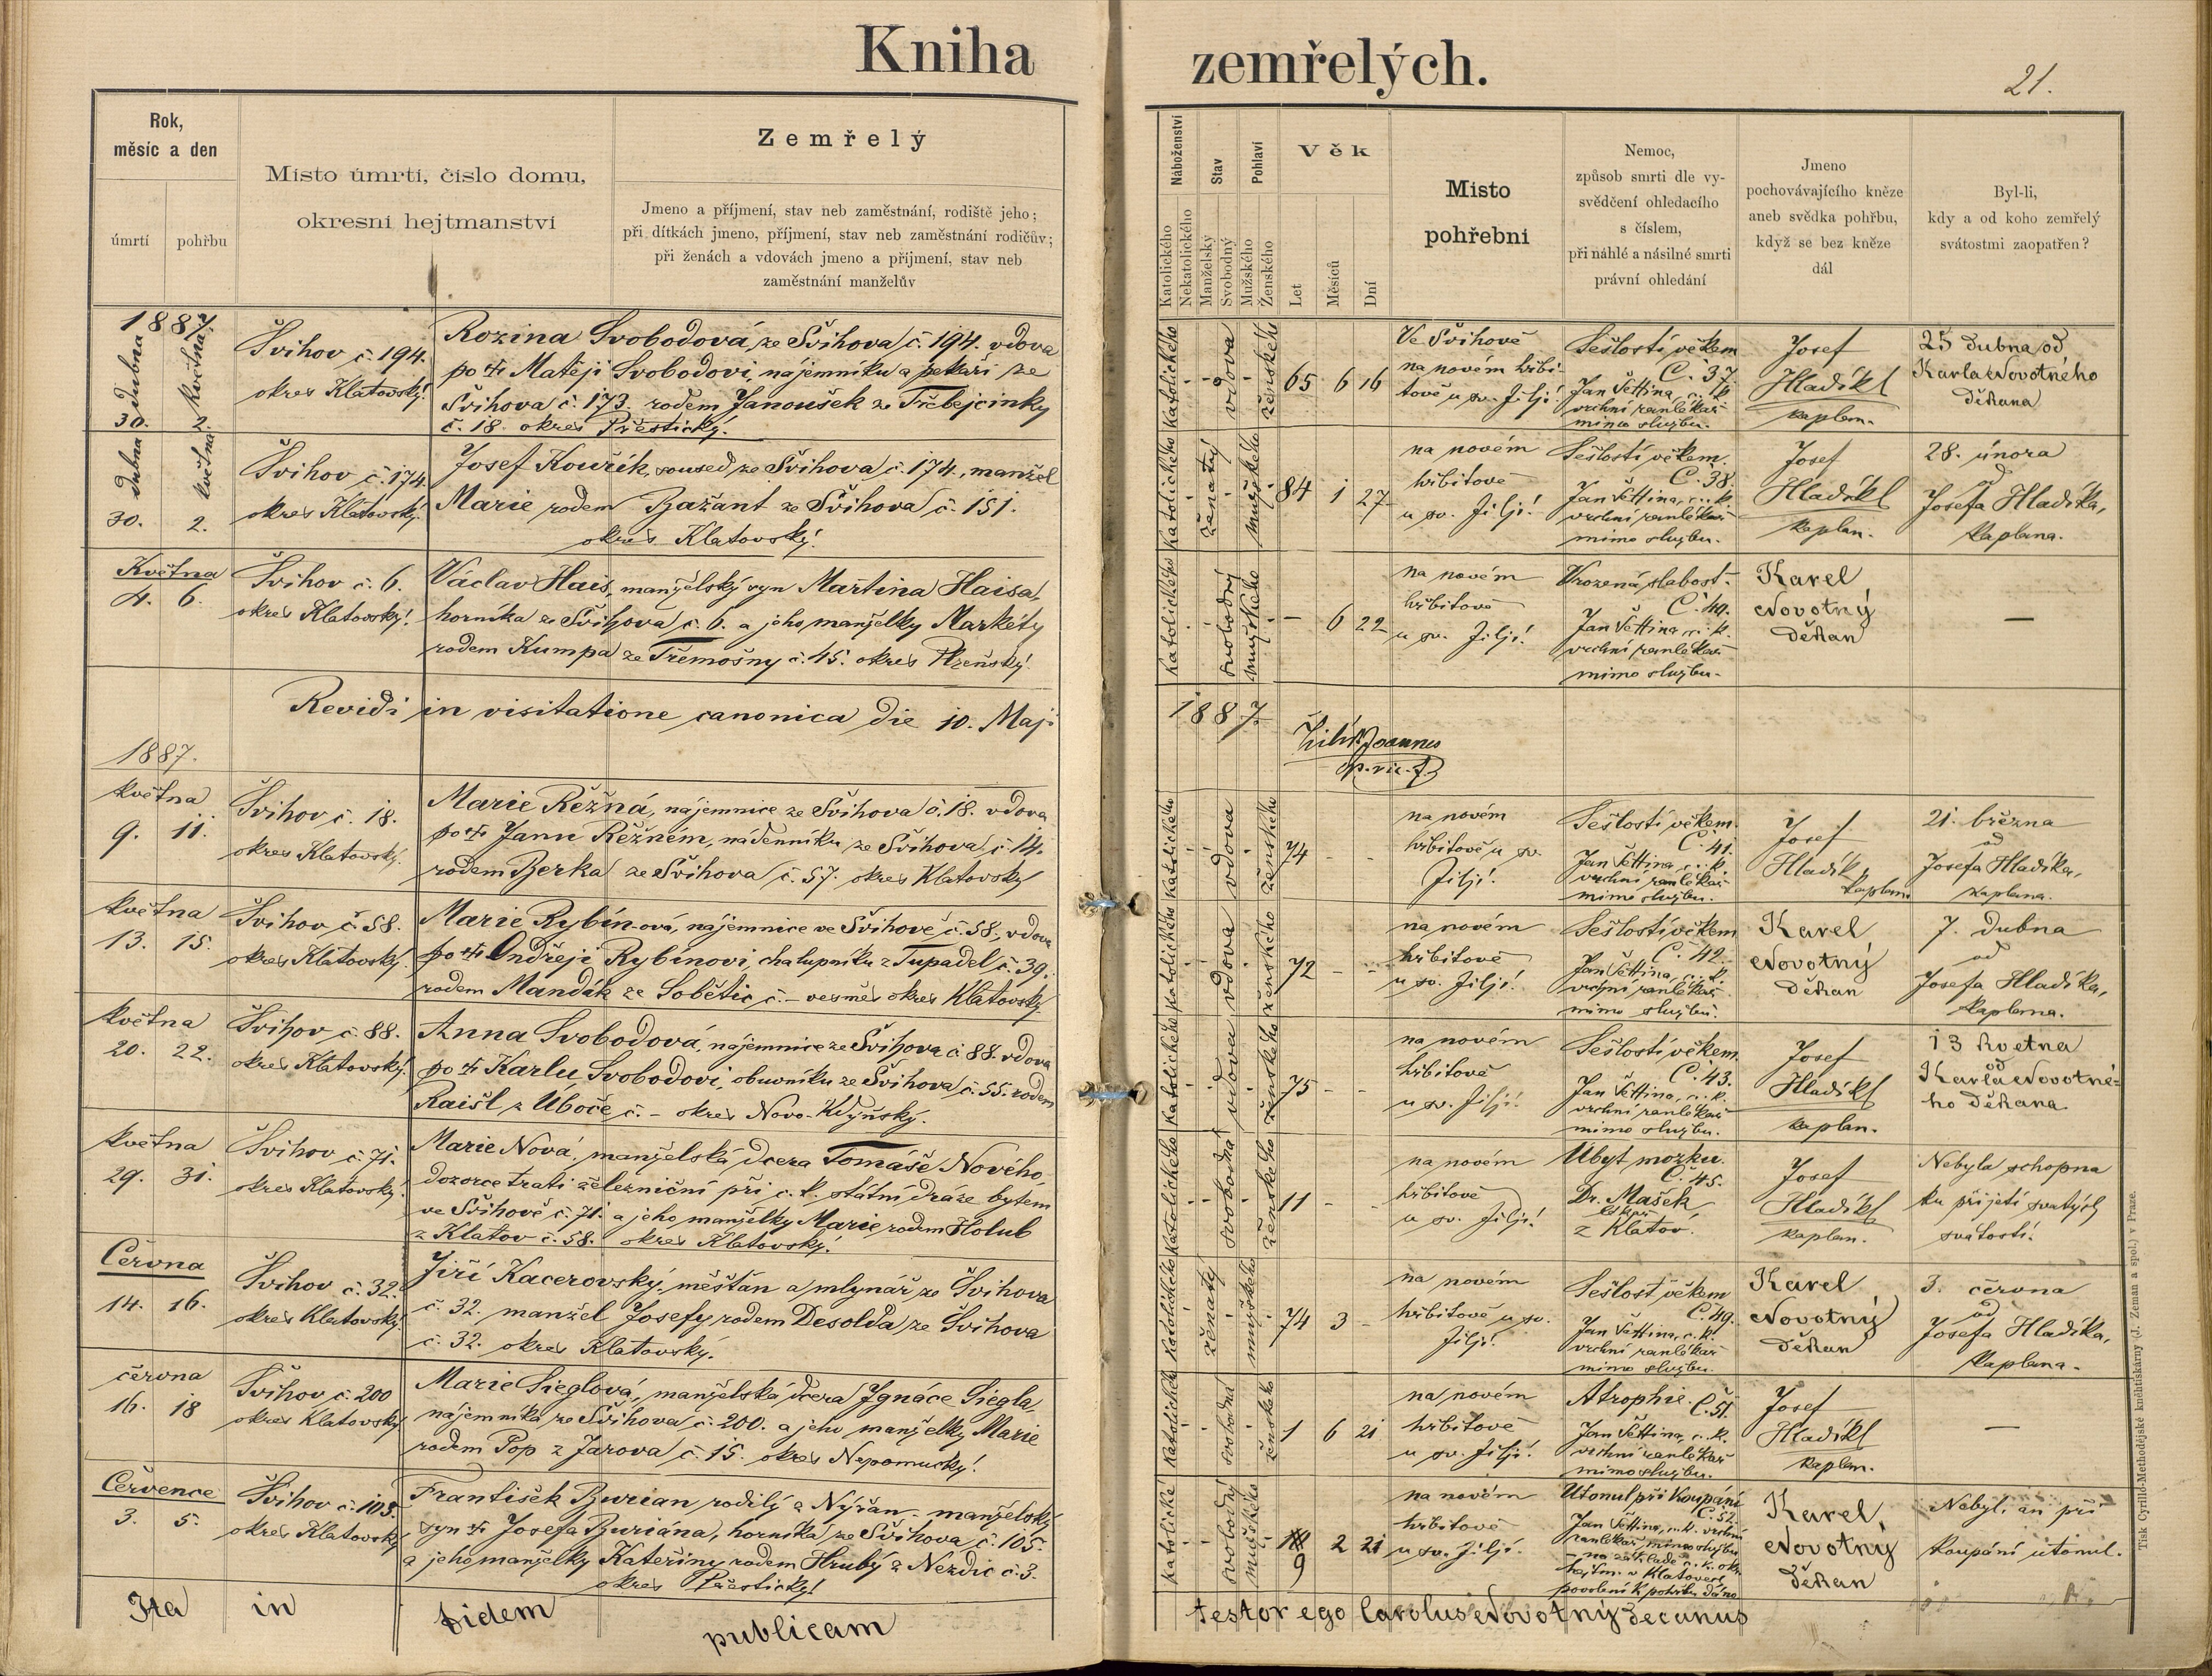 Kniha zemřelých.
21.
Rok,
měsíc a den
úmrtí
pohřbu
Místo úmrtí, číslo domu,
okresní hejtmanství
Zemřelý
Jmeno a příjmení, stav neb zaměstnání, rodiště jeho;
při dítkách jmeno, příjmení, stav neb zaměstnání rodičův;
při ženách a vdovách jmeno a příjmení, stav neb
zaměstnání manželův
Náboženství
Katolického
Nekatolického
Stav
Manželský
Svobodný
Pohlaví
Mužského
Ženského
Věk
Let
Měsíců
Dní
Místo
pohřební
Nemoc,
způsob smrti dle vy-
svědčení ohledacího
s číslem,
při náhlé a násilné smrti
právní ohledání
Jmeno
pochovávajícího kněze
aneb svědka pohřbu,
když se bez kněze
dál
Byl-li,
kdy a od koho zemřelý
svátostmi zaopatřen?
1887.
30. dubna
2. května
Švihov č. 194.
okres Klatovský.
Rozina Svobodová, ze Švihova č. 194. vdova
po † Matěji Svobodovi, nájemníku a pekaři ze
Švihova č. 173. rodem Janoušek ze Třebejcinky
č. 18. okres Přestický.
katolického
vdova
ženského
65 6 16
Ve Švihově
na novém hřbi-
tově u sv. Jiljí.
Sešlostí věkem
C. 37.
Jan Šettina, c. k.
vrchní ranlékař
mimo službu.
Josef
Hladík
kaplan.
25 dubna od
Karla Novotného
děkana
30. dubna
2. května
Švihov č. 174.
okres Klatovský.
Josef Kouřík, soused ze Švihova č. 174., manžel
Marie rodem Bažant ze Švihova č. 151.
okres Klatovský.
katolického
ženatý
mužského
84 1 27
na novém
hřbitově
u sv. Jiljí.
Sešlostí věkem.
C. 38.
Jan Šettina, c. k.
vrchní ranlékař
mimo službu.
Josef
Hladík
kaplan.
28. února
od
Josefa Hladíka,
kaplana.
Května
4. 6.
Švihov č. 6.
okres Klatovský.
Václav Hais, manželský syn Martina Haisa,
horníka ze Švihova č. 6. a jeho manželky Markéty
rodem Kumpa ze Třemošny č. 45. okres Plzeňský.
katolického
svobodný
mužského
— 6 22
na novém
hřbitově
u sv. Jiljí.
Vrozená slabost.
C. 40.
Jan Šettina, c. k.
vrchní ranlékař
mimo službu.
Karel
Novotný
děkan
—
Revidi in visitatione canonica die 10. Maji
1887.
Joannes
1887.
května
9. 11.
Švihov č. 18.
okres Klatovský.
Marie Řěžná, nájemnice ze Švihova č. 18. vdova
po † Janu Řěžném, nádenníku ze Švihova č. 14.
rodem Berka ze Švihova č. 57. okres Klatovský
katolického
vdova
ženského
74 - -
na novém
hřbitově u sv.
Jiljí.
Sešlostí věkem.
C. 41.
Jan Šettina, c. k.
vrchní ranlékař
mimo službu.
Josef
Hladík,
kaplan
21. března
od
Josefa Hladíka,
kaplana.
května
13. 15.
Švihov č. 58.
okres Klatovský.
Marie Rybín-ová, nájemnice ve Švihově č. 58., vdova
po † Ondřeji Rybínovi, chalupníku z Tupadel č. 39.
rodem Mandák ze Sobětic č. - vesměs okres Klatovský.
katolického
vdova
ženského
72 - -
na novém
hřbitově
u sv. Jiljí.
Sešlostí věkem
C. 42.
Jan Šettina, c. k.
vrchní ranlékař
mimo službu.
Karel
Novotný
děkan
7. dubna
od
Josefa Hladíka,
kaplana.
května
20. 22.
Švihov č. 88.
okres Klatovský.
Anna Svobodová, nájemnice ze Švihova č. 88. vdova
po † Karlu Svobodovi, obuvníku ze Švihova č. 55. rodem
Raišl z Úboče č. - okres Novo-Kdyňský.
katolického
vdova
ženského
75 - -
na novém
hřbitově
u sv. Jiljí.
Sešlostí věkem.
C. 43.
Jan Šettina, c. k.
vrchní ranlékař
mimo službu.
Josef
Hladík
kaplan.
13 května
od
Karla Novotné-
ho děkana
května
29. 31.
Švihov č. 71.
okres Klatovský.
Marie Nová, manželská dcera Tomáše Nového,
dozorce trati železniční při c. k. státní dráze bytem
ve Švihově č. 71. a jeho manželky Marie rodem Holub
z Klatov č. 58. okres Klatovský.
katolického
svobodná
ženského
11 - -
na novém
hřbitově
u sv. Jiljí.
Úbyt mozku.
C. 45.
Dr. Mašek
z Klatov.
Josef
Hladík
kaplan.
Nebyla schopna
ku přijetí svatých
svátostí.
Června
14. 16.
Švihov č. 32.
okres Klatovský.
Jiří Kacerovský, měšťan a mlynář ze Švihova
č. 32. manžel Josefy rodem Desolda ze Švihova
č. 32. okres Klatovský.
katolického
ženatý
mužského
74 3 -
na novém
hřbitově u sv.
Jiljí.
Sešlost věkem
C. 49.
Jan Šettina, c. k.
vrchní ranlékař
mimo službu.
Karel
Novotný
děkan
3. června
od
Josefa Hladíka,
kaplana.
června
16. 18
Švihov č. 200
okres Klatovský
Marie Sieglová, manželská dcera Ignáce Siegla,
nájemníka ze Švihova č. 200. a jeho manželky Marie
rodem Pop z Jarova č. 15. okres Nepomucký.
katolické
svobodná
ženského
1 6 21
na novém
hřbitově
u sv. Jiljí.
Atrophie. C. 51.
Jan Šettina, c. k.
vrchní ranlékař
mimo službu.
Josef
Hladík
kaplan.
—
Července
3. 5.
Švihov č. 105.
okres Klatovský
František Burian rodilý z Nýřan - manželský
syn † Josefa Buriána, horníka ze Švihova č. 105.
a jeho manželky Kateřiny rodem Hrubý z Nezdic č. 3.
okres Přestický.
katolické
svobodný
mužského
9 2 21
na novém
hřbitově
u sv. Jiljí.
Utonul při koupání
C. 52.
Jan Šettina, c. k. vrchní
ranlékař, mimo službu
- na základě c. k. okr.
hejtm. v Klatovech
povolení k pohřbu dáno
Karel
Novotný
děkan
Nebyl, an při
koupání utonul.
Ita in fidem publicam testor ego Carolus Novotný decanus
Tisk Cyrillo-Methodějské kněhtiskárny (J. Zeman a spol.) v Praze.